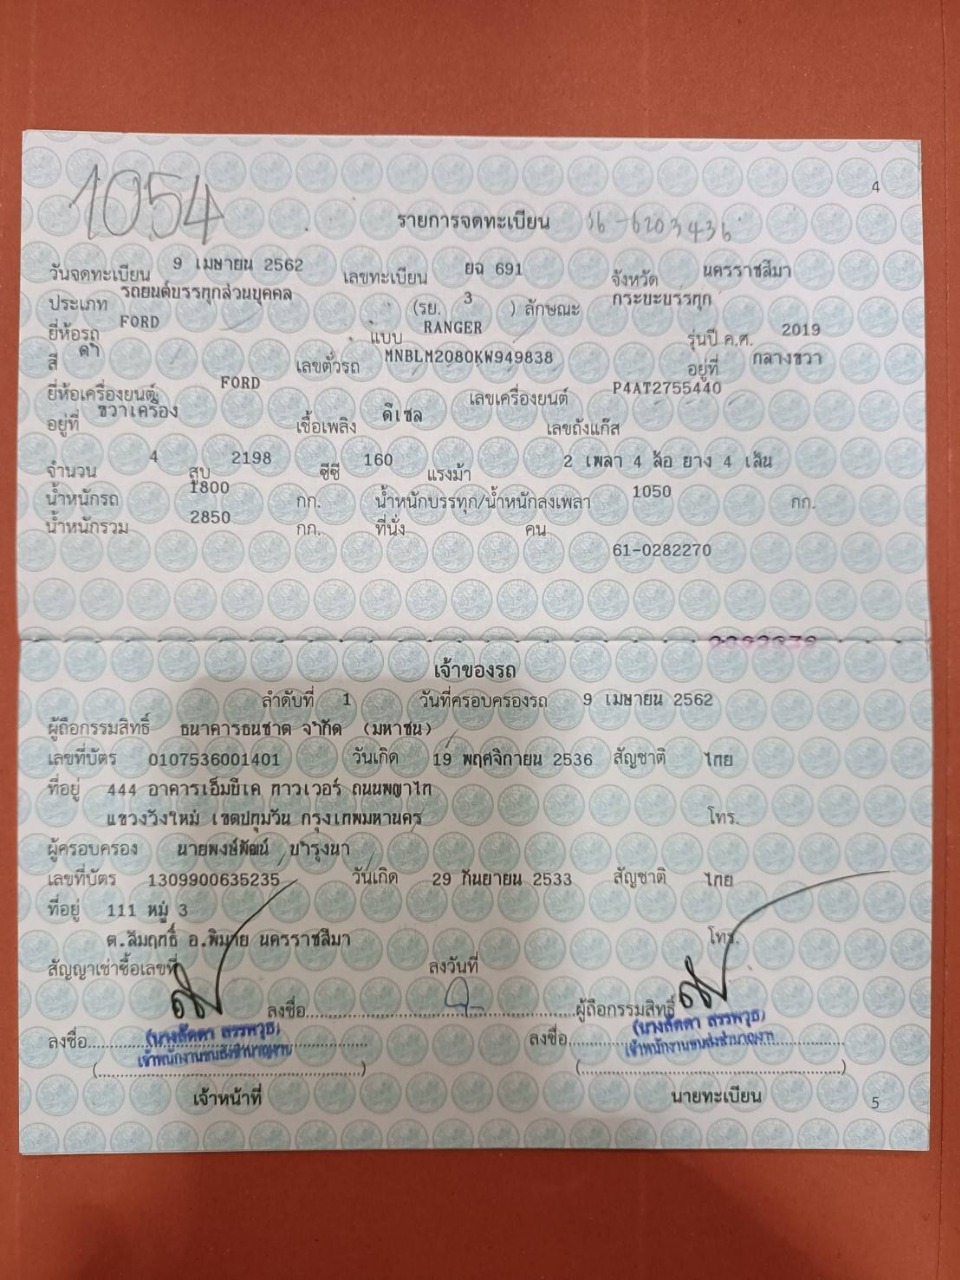 4
1054
รายการจดทะเบียน 36-6203436
วันจดทะเบียน 9 เมษายน 2562 เลขทะเบียน ยฉ 691 จังหวัด นครราชสีมา
ประเภท รถยนต์บรรทุกส่วนบุคคล (รย. 3 ) ลักษณะ กระบะบรรทุก
ยี่ห้อรถ FORD แบบ RANGER รุ่นปี ค.ศ. 2019
สี ดำ เลขตัวรถ MNBLM2080KW949838 อยู่ที่ กลางขวา
ยี่ห้อเครื่องยนต์ FORD เลขเครื่องยนต์ P4AT2755440
อยู่ที่ ขวาเครื่อง เชื้อเพลิง ดีเซล เลขถังแก๊ส
จำนวน 4 สูบ 2198 ซีซี 160 แรงม้า 2 เพลา 4 ล้อ ยาง 4 เส้น
น้ำหนักรถ 1800 กก. น้ำหนักบรรทุก/น้ำหนักลงเพลา 1050 กก.
น้ำหนักรวม 2850 กก. ที่นั่ง คน
61-0282270
เจ้าของรถ
ลำดับที่ 1 วันที่ครอบครองรถ 9 เมษายน 2562
ผู้ถือกรรมสิทธิ์ ธนาคารธนชาต จำกัด (มหาชน)
เลขที่บัตร 0107536001401 วันเกิด 19 พฤศจิกายน 2536 สัญชาติ ไทย
ที่อยู่ 444 อาคารเอ็มบีเค ทาวเวอร์ ถนนพญาไท
แขวงวังใหม่ เขตปทุมวัน กรุงเทพมหานคร โทร.
ผู้ครอบครอง นายพงษ์พัฒน์ บำรุงนา
เลขที่บัตร 1309900635235 วันเกิด 29 กันยายน 2533 สัญชาติ ไทย
ที่อยู่ 111 หมู่ 3
ต.สัมฤทธิ์ อ.พิมาย นครราชสีมา โทร.
สัญญาเช่าซื้อเลขที่ ลงวันที่
ลงชื่อ ผู้ถือกรรมสิทธิ์
ลงชื่อ (นางลัดดา สรรพวุธ) ลงชื่อ (นางลัดดา สรรพวุธ)
เจ้าพนักงานขนส่งชำนาญงาน เจ้าพนักงานขนส่งชำนาญงาน
เจ้าหน้าที่ นายทะเบียน
5